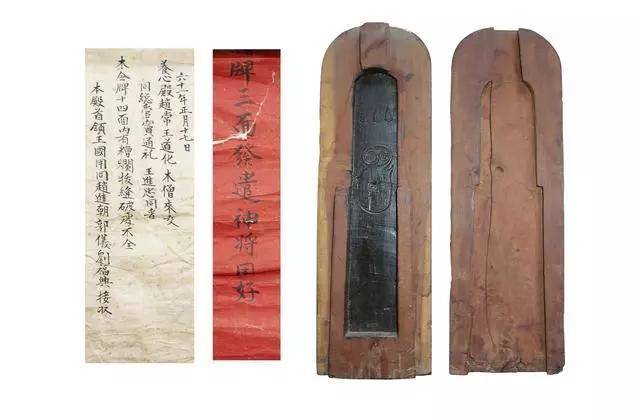 六十一年正月十七日
養心殿趙常王道化 木僧來文
同總管 通礼 王進忠同看
木令牌十四面内有糟爛接縫破壞不全
本殿首領王國用同趙進朝郭儀劉福興接收
牌三面發遣神将用好